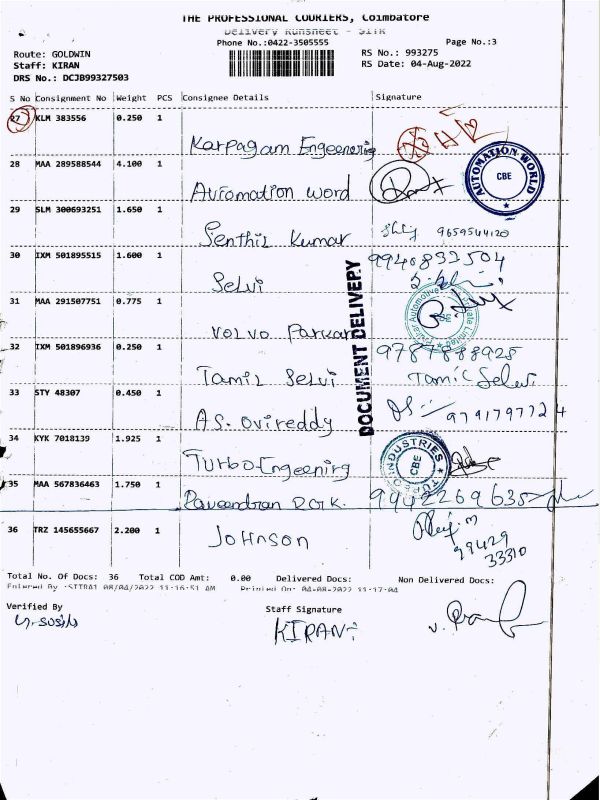 THE PROFESSIONAL COURIERS, Coimbatore
Delivery Runsheet - SITR
Phone No.:0422-3505555
Page No.:3
Route: GOLDWIN
Staff: KIRAN
DRS No.: DCJB99327503
RS No.: 993275
RS Date: 04-Aug-2022
S No Consignment No Weight PCS Consignee Details Signature
27 KLM 383556 0.250 1
Karpagam Engeenering
28 MAA 289588544 4.100 1
Automation word
AUTOMATION WORLD CBE
29 SLM 300693251 1.650 1
Senthil Kumar 9659544120
30 IXM 501895515 1.600 1 9940832504
Selvi
31 MAA 291507751 0.775 1
Volvo Parkar
DOCUMENT DELIVERY
32 IXM 501896936 0.250 1 9787888925
Tamil Selvi Tamil Selvi
33 STY 48307 0.450 1
AS. Ovireddy 9791797724
34 KYK 7018139 1.925 1
Turbo-Engeening
INDUSTRIES CBE
35 MAA 567836463 1.750 1
Raveendran D.G.K. 9442269635
36 TRZ 145655667 2.200 1
Johnson
99429
33310
Total No. Of Docs: 36 Total COD Amt: 0.00 Delivered Docs: Non Delivered Docs:
Entered By :SITRA1 08/04/2022 11:16:51 AM Printed On: 04-08-2022 11:17:04
Verified By
Staff Signature
KIRAN